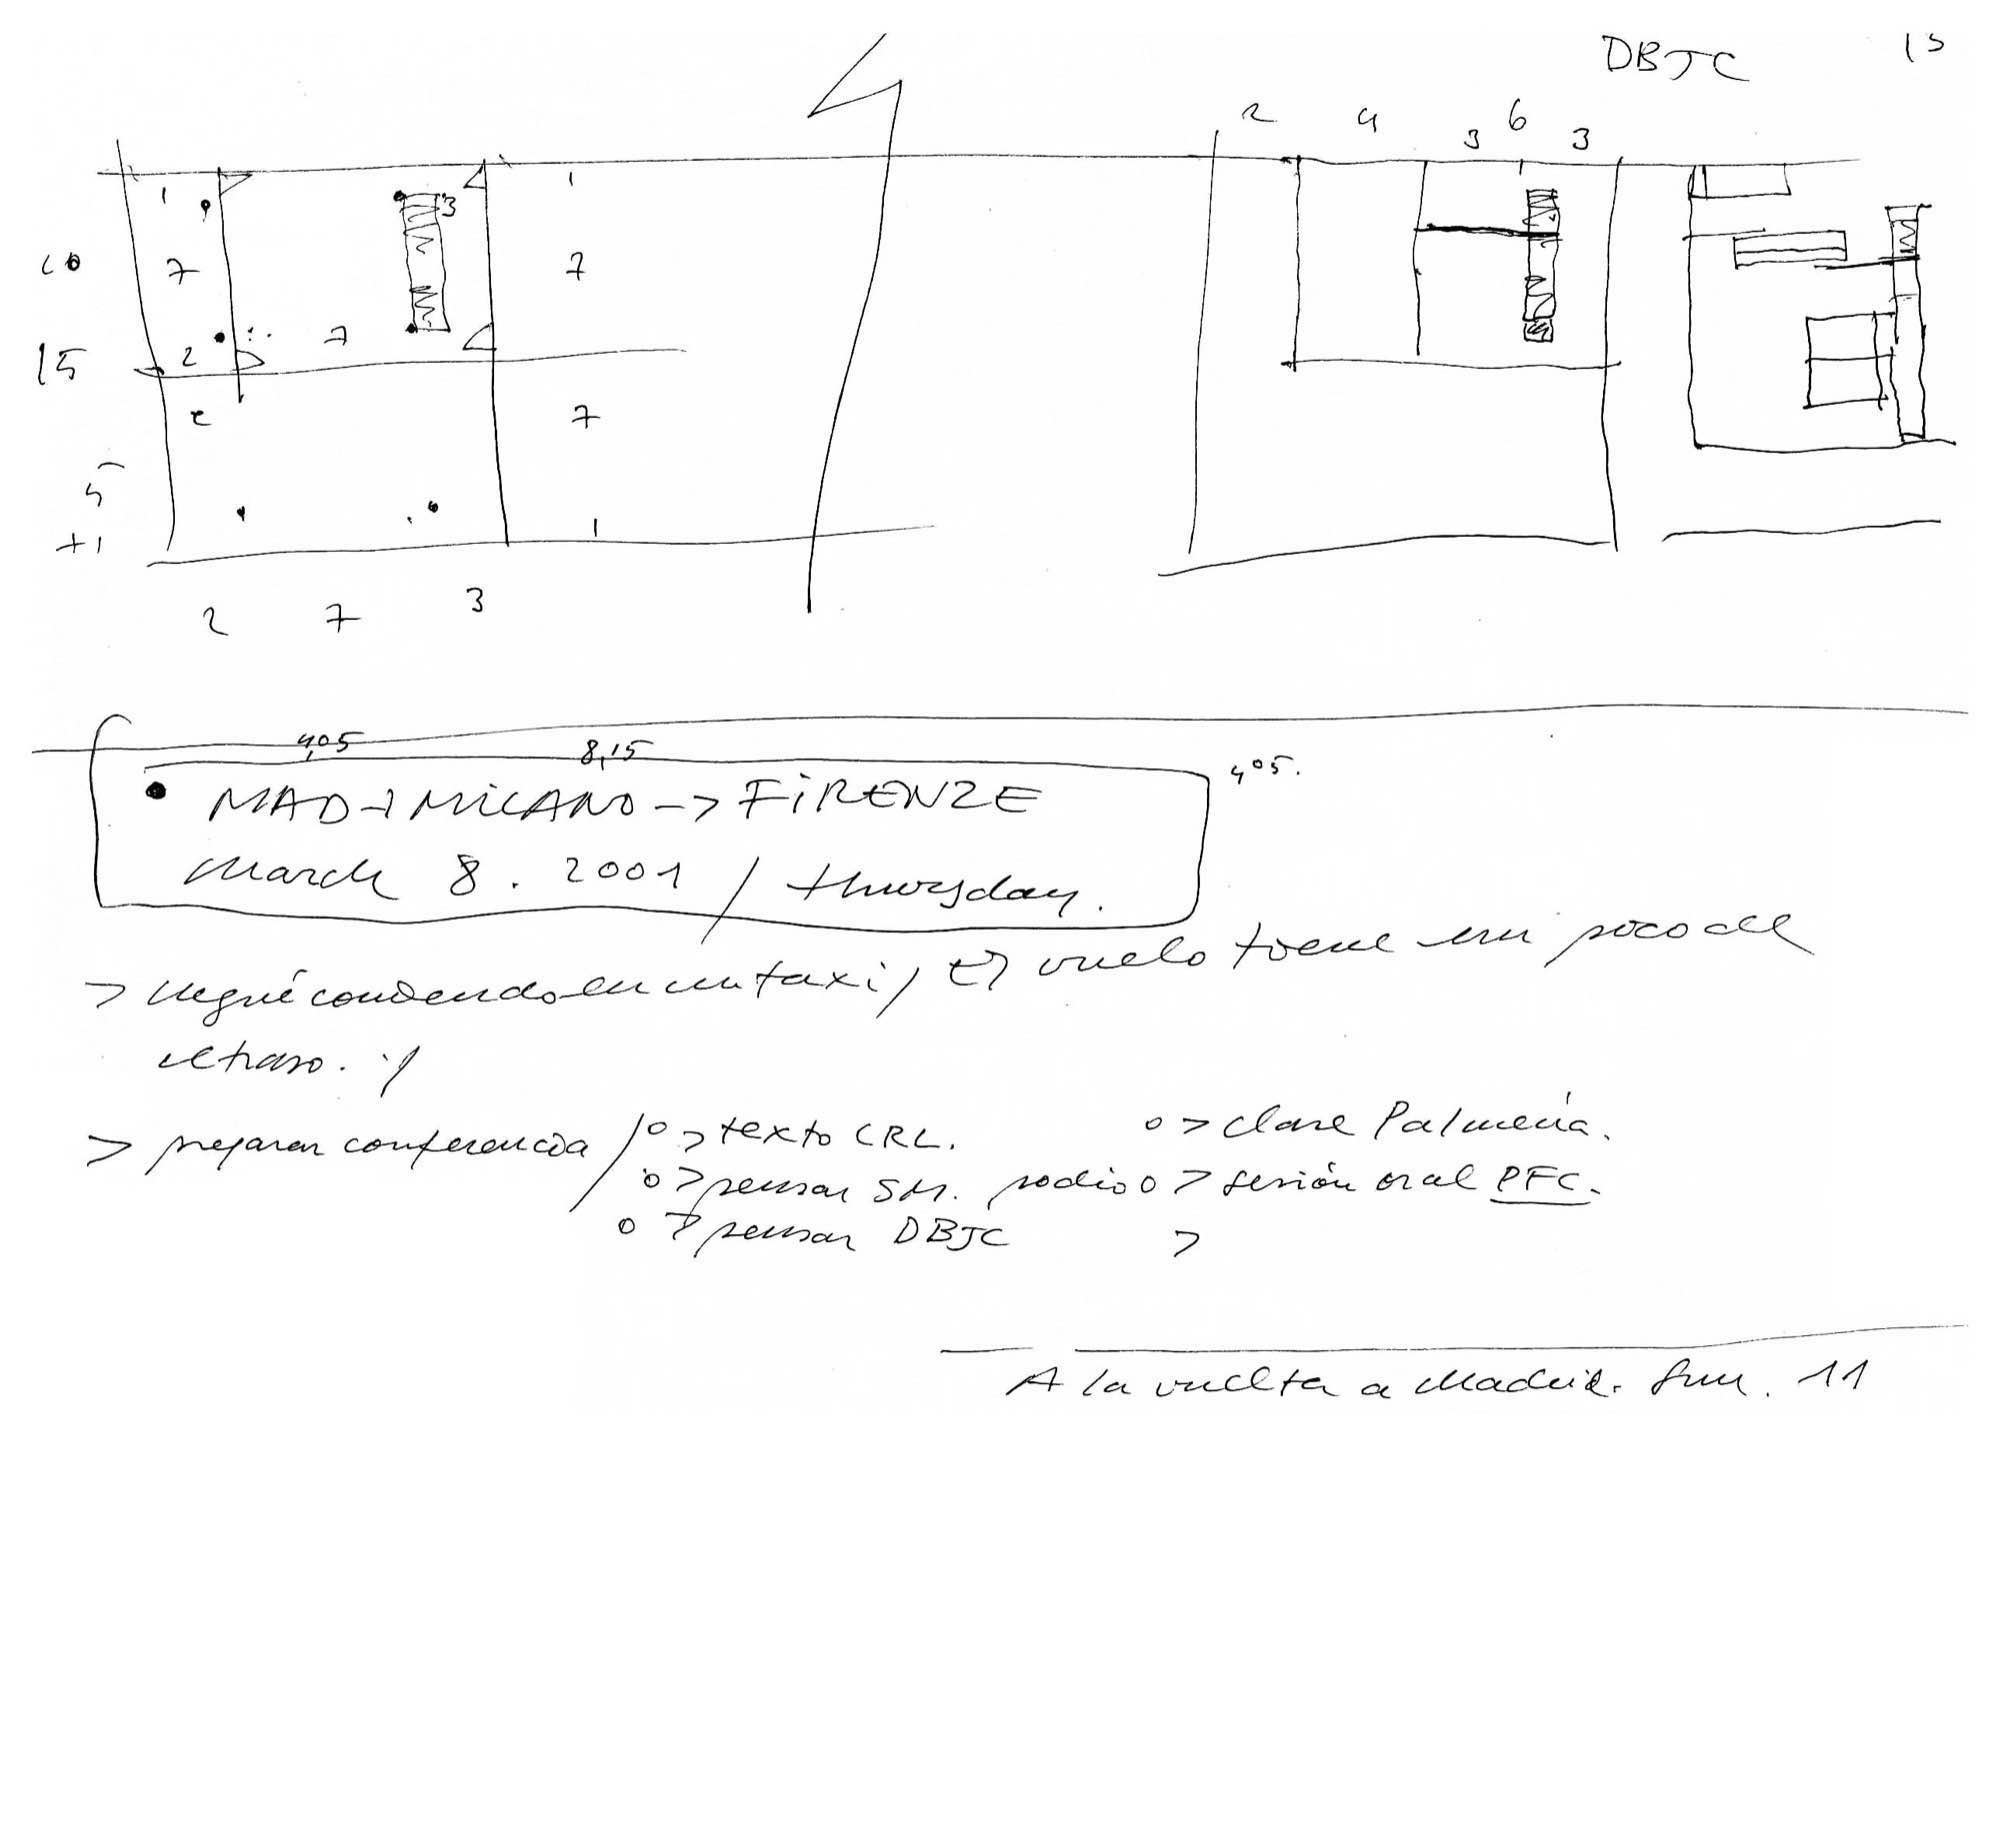 DBJC 15
2 4 3 6 3
1 3 1
10 7 7
7
15 2
2 7
5
+1 1
2 7 3
4,05 8,15 4,05.
• MAD → MILANO -> FIRENZE
March 8. 2001 / thursday.
> llegué corriendo en un taxi / El vuelo tiene un poco de
retraso. y
> preparar conferencia / o > texto CRL. o > clase Palmería.
o > pensar SM. o > sesión oral PFC.
o > pensar DBJC >
A la vuelta a Madrid. Sun. 11